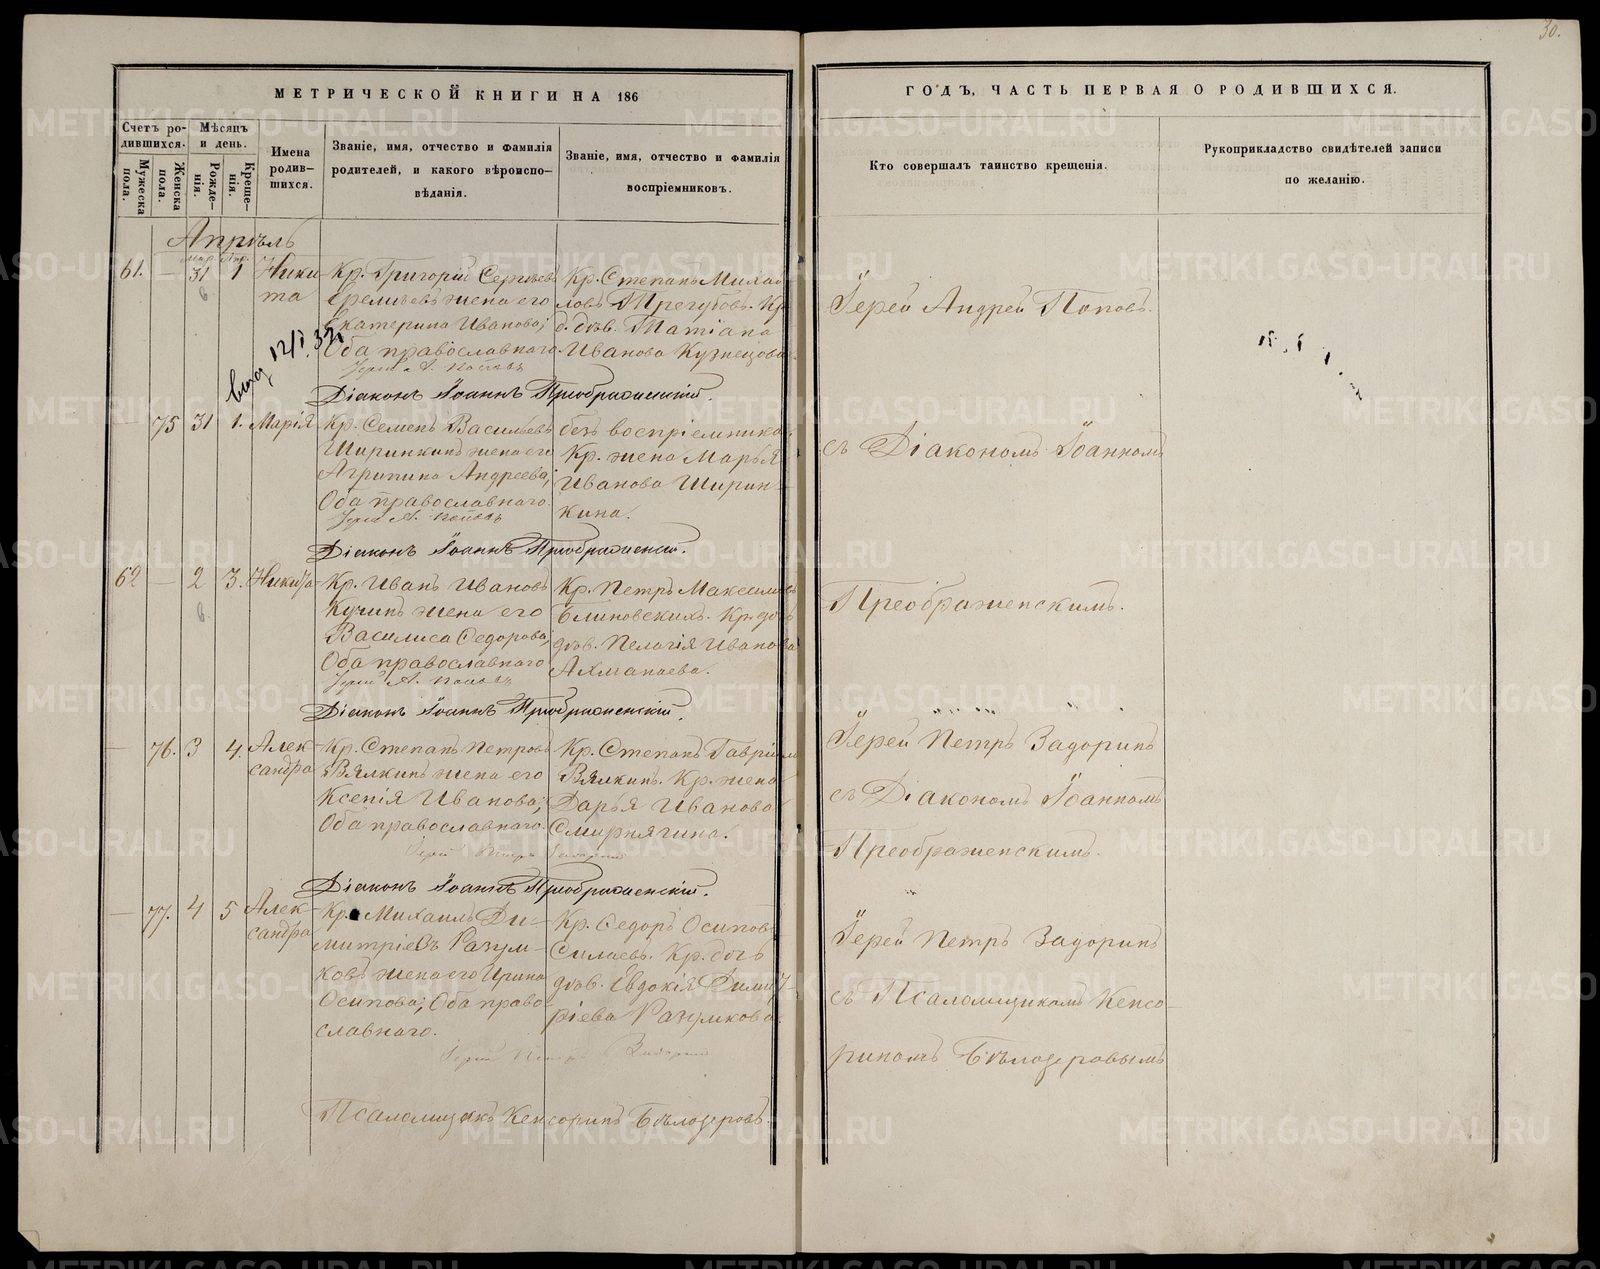 30.
МЕТРИЧЕСКОЙ КНИГИ НА 186
ГОДЪ, ЧАСТЬ ПЕРВАЯ О РОДИВШИХСЯ.
Счетъ ро-
дившихся.
Мужеска
пола.
Женска
пола.
Мѣсяцъ
и день.
Рожде-
нія.
Креще-
нія.
Имена
родив-
шихся.
Званіе, имя, отчество и фамилія
родителей, и какого вѣроиспо-
вѣданія.
Званіе, имя, отчество и фамилія
воспріемниковъ.
Кто совершалъ таинство крещенія.
Рукоприкладство свидѣтелей записи
по желанію.
Апрѣль
61. — 31 1 Ники-
та
Кр. Григорій Сергѣевъ
Еремѣевъ жена его
Екатерина Иванова;
Оба православнаго.
Іерей А. Поповъ
Кр. Степанъ Михай
ловъ Трегубовъ. Кр.
д. дѣв. Татіана
Иванова Кузнецова
Іерей Андрей Поповъ.
Діаконъ Іоаннъ Преображенскій.
— 75 31 1. Марія
Кр. Семенъ Васильевъ
Ширинкинъ жена его
Агрипина Андреева;
Оба православнаго.
Іерей А. Поповъ
безъ воспріемника.
Кр. жена Марья
Иванова Ширин-
кина.
съ Діакономъ Іоанномъ
Діаконъ Іоаннъ Преображенскій.
62 — 2 3. Никита
Кр. Иванъ Ивановъ
Кучинъ жена его
Василиса Ѳедорова;
Оба православнаго
Іерей А. Поповъ
Кр. Петръ Максимовъ
Блиновскихъ. Кр. дочь
дѣв. Пелагія Иванова
Ахманаева.
Преображенскимъ.
Діаконъ Іоаннъ Преображенскій.
— 76. 3 4. Алек-
сандра
Кр. Степанъ Петровъ
Вялкинъ жена его
Ксенія Иванова;
Оба православнаго.
Іерей Петръ Задоринъ
Кр. Степанъ Гавріил
Вялкинъ. Кр. жена
Дарья Иванова
Смирнягина.
Іерей Петръ Задоринъ
съ Діакономъ Іоанномъ
Преображенскимъ.
Діаконъ Іоаннъ Преображенскій.
— 77. 4 5 Алек-
сандра
Кр. Михаилъ Ди-
митріевъ Разум-
ковъ жена его Ирина
Осипова; Оба право-
славнаго.
Іерей Петръ Задоринъ
Кр. Ѳедоръ Осиповъ
Силаевъ. Кр. дочь
дѣв. Евдокія Димит-
ріева Разумкова.
Іерей Петръ Задоринъ
съ Псаломщикомъ Кенсо-
риномъ Бѣлозеровымъ
Псаломщикъ Кенсоринъ Бѣлозеровъ.
METRIKI.GASO-URAL.RU